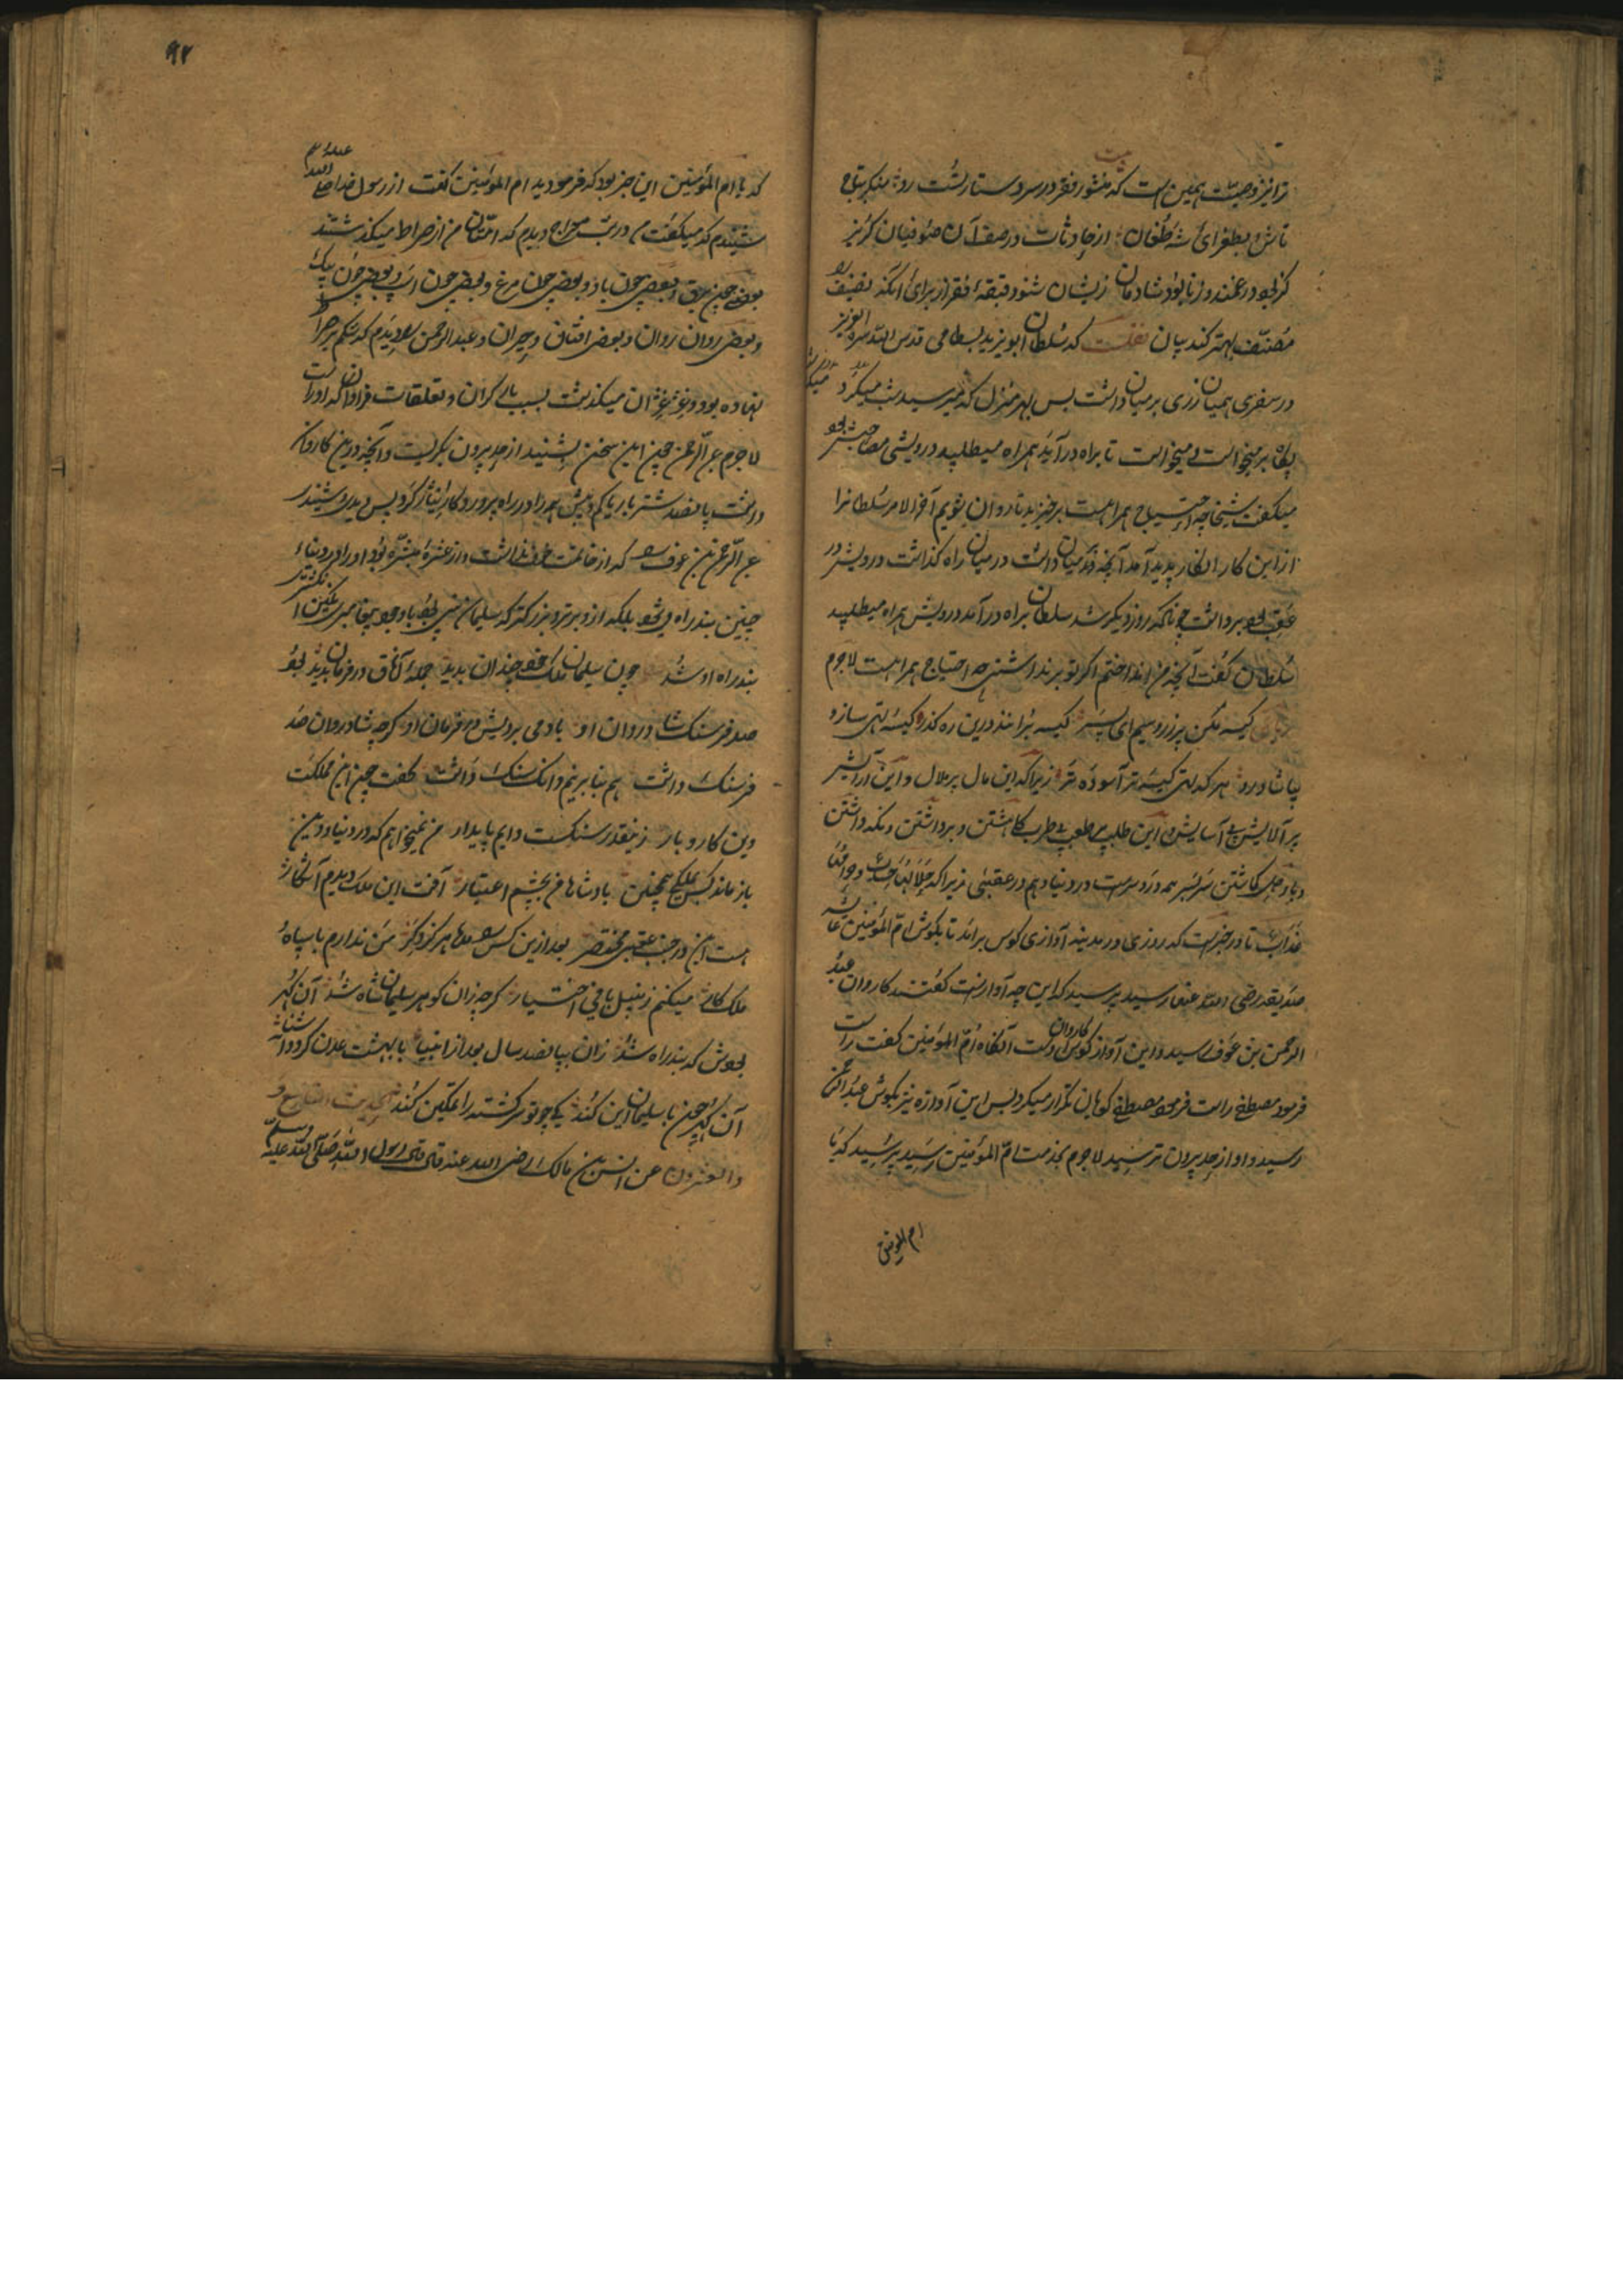 ترا نیز وصیت همین است که منشور فقر در سر دستار تست رو منکر بتاج
تاش و بطغرای شه طغان از حادثات در صف آن صوفیان گریز
کز بود در غمند و ز نابود شادمان زیشان شنو دقیقهٔ فقر از برای آنکه تصنیف را
مصنف بهتر کند بیان نقلست که سلطان ابو یزید بسطامی قدس الله سره العزیز
در سفری همیان زری بر میان داشت بس بهر منزل که میرسید شب میکرد
پگاه بر میخواست می میخواست تا براه درآید همراه میطلبید درویشی مصاحبش بود
میگفت شیخا چه احتیاج همراهست برخیزید تا روان شویم آخر الامر سلطانرا
از این کار انکار پدید آمد آنچه در میان داشت در میان راه گذاشت درویش در
عقب بود برداشت چونانکه روز دیگر شد سلطان براه درآمد درویش همراه میطلبید
سلطان گفت آنچه من انداختم اگر تو برنداشتی چه احتیاج همراهست لاجرم
کیسه مکن پر زر و سیم ای پسر کیسه برانند درین ره گذر کیسه تهی ساز و
بیا شاد رو هر که تهی کیسه تر آسوده تر زیرا که این مال پر ملال و این آرایش
پر آلایش بی آسایش و این طلب بی طرب کاشتن و برداشتن و نگه داشتن
و باد حاصل کاشتن سربسر همه درد سرست در دنیا و هم در عقبی زیرا که حلالها حساب و حرامها
عذاب تا در خبرست که روزی در مدینه آوازی کوس برآمد تا بگوش ام المؤمنین عایشه
صدیقه رضی الله عنها رسید پرسید که این چه آوازست گفتند کاروان عبد
الرحمن بن عوف رسید و این آواز کوس کاروان اوست آنگاه ام المؤمنین گفت راست
فرمود مصطفی راست فرمود مصطفی گویان تکرار میکرد بس این آوازه نیز بگوش عبد الرحمن
رسید و او از حد بیرون ترسید لاجرم بخدمت ام المؤمنین رسید پرسید که یا
ام المؤمنین
۹۲
که یا ام المؤمنین این خبر بود که فرمودید ام المؤمنین گفت از رسول خدا صلی الله علیه و سلم
شنیدم که میگفت من در شب معراج دیدم که امتان من از صراط میگذشتند
بعضی چون برق و بعضی چون باد و بعضی چون مرغ و بعضی چون اسپ و بعضی چون پیک
و بعضی روان روان و بعضی افتان و خیران و عبد الرحمن را دیدم که شکم بر صراط
نهاده بود و غژ غژان میگذشت بسبب مال گران و تعلقات فراوان که او راست
لاجرم عبد الرحمن چون این سخن بشنید از حد بیرون بگریست و آنچه درین کاروان
داشت پانصد شتر بار یا کم و بیش همه را در راه پروردگار ایثار کرد بس دیدی و شنیدی
عبد الرحمن بن عوف را که از خاصان حضرت داشت و از عشرهٔ مبشره بود او را در دنیا
چنین بند راه میشود بلکه ازو برتر و بزرگتر که سلیمان نبی بود با وجود پیغامبری نگین انگشتری
بند راه او شد چون سلیمان ملک خود چندان بدید جملهٔ آفاق در فرمان بدید بود
صد فرسنگ شادروان او باد می بردیش در فرمان او گرچه شادروان صد
فرسنگ داشت هم بنا بر نیم دانگ سنگ داشت گفت چون این مملکت
وین کار و بار زینقدر سنگست دایم پایدار من نمیخواهم که در دنیا و دین
باز ماند کس بملکی همچنین پادشاها من بچشم اعتبار آفت این ملک دیدم آشکار
هست این در جنب عقبی مختصر بعد ازین کس را مده هرگز دگر من ندارم با سپاه
ملک کار میکنم زنبیل بافی اختیار گرچه زان گوهر سلیمان شاه شد آن گهر
بودش که بند راه شد زان بپانصد سال بعد از انبیا با بهشت عدن گردد آشنا
آن گهر چون با سلیمان این کند کی چو تو سرگشته را تمکین کند الحدیث التاسع و
والعشرون عن انس بن مالک رضی الله عنه قال قال رسول الله صلی الله علیه وسلم